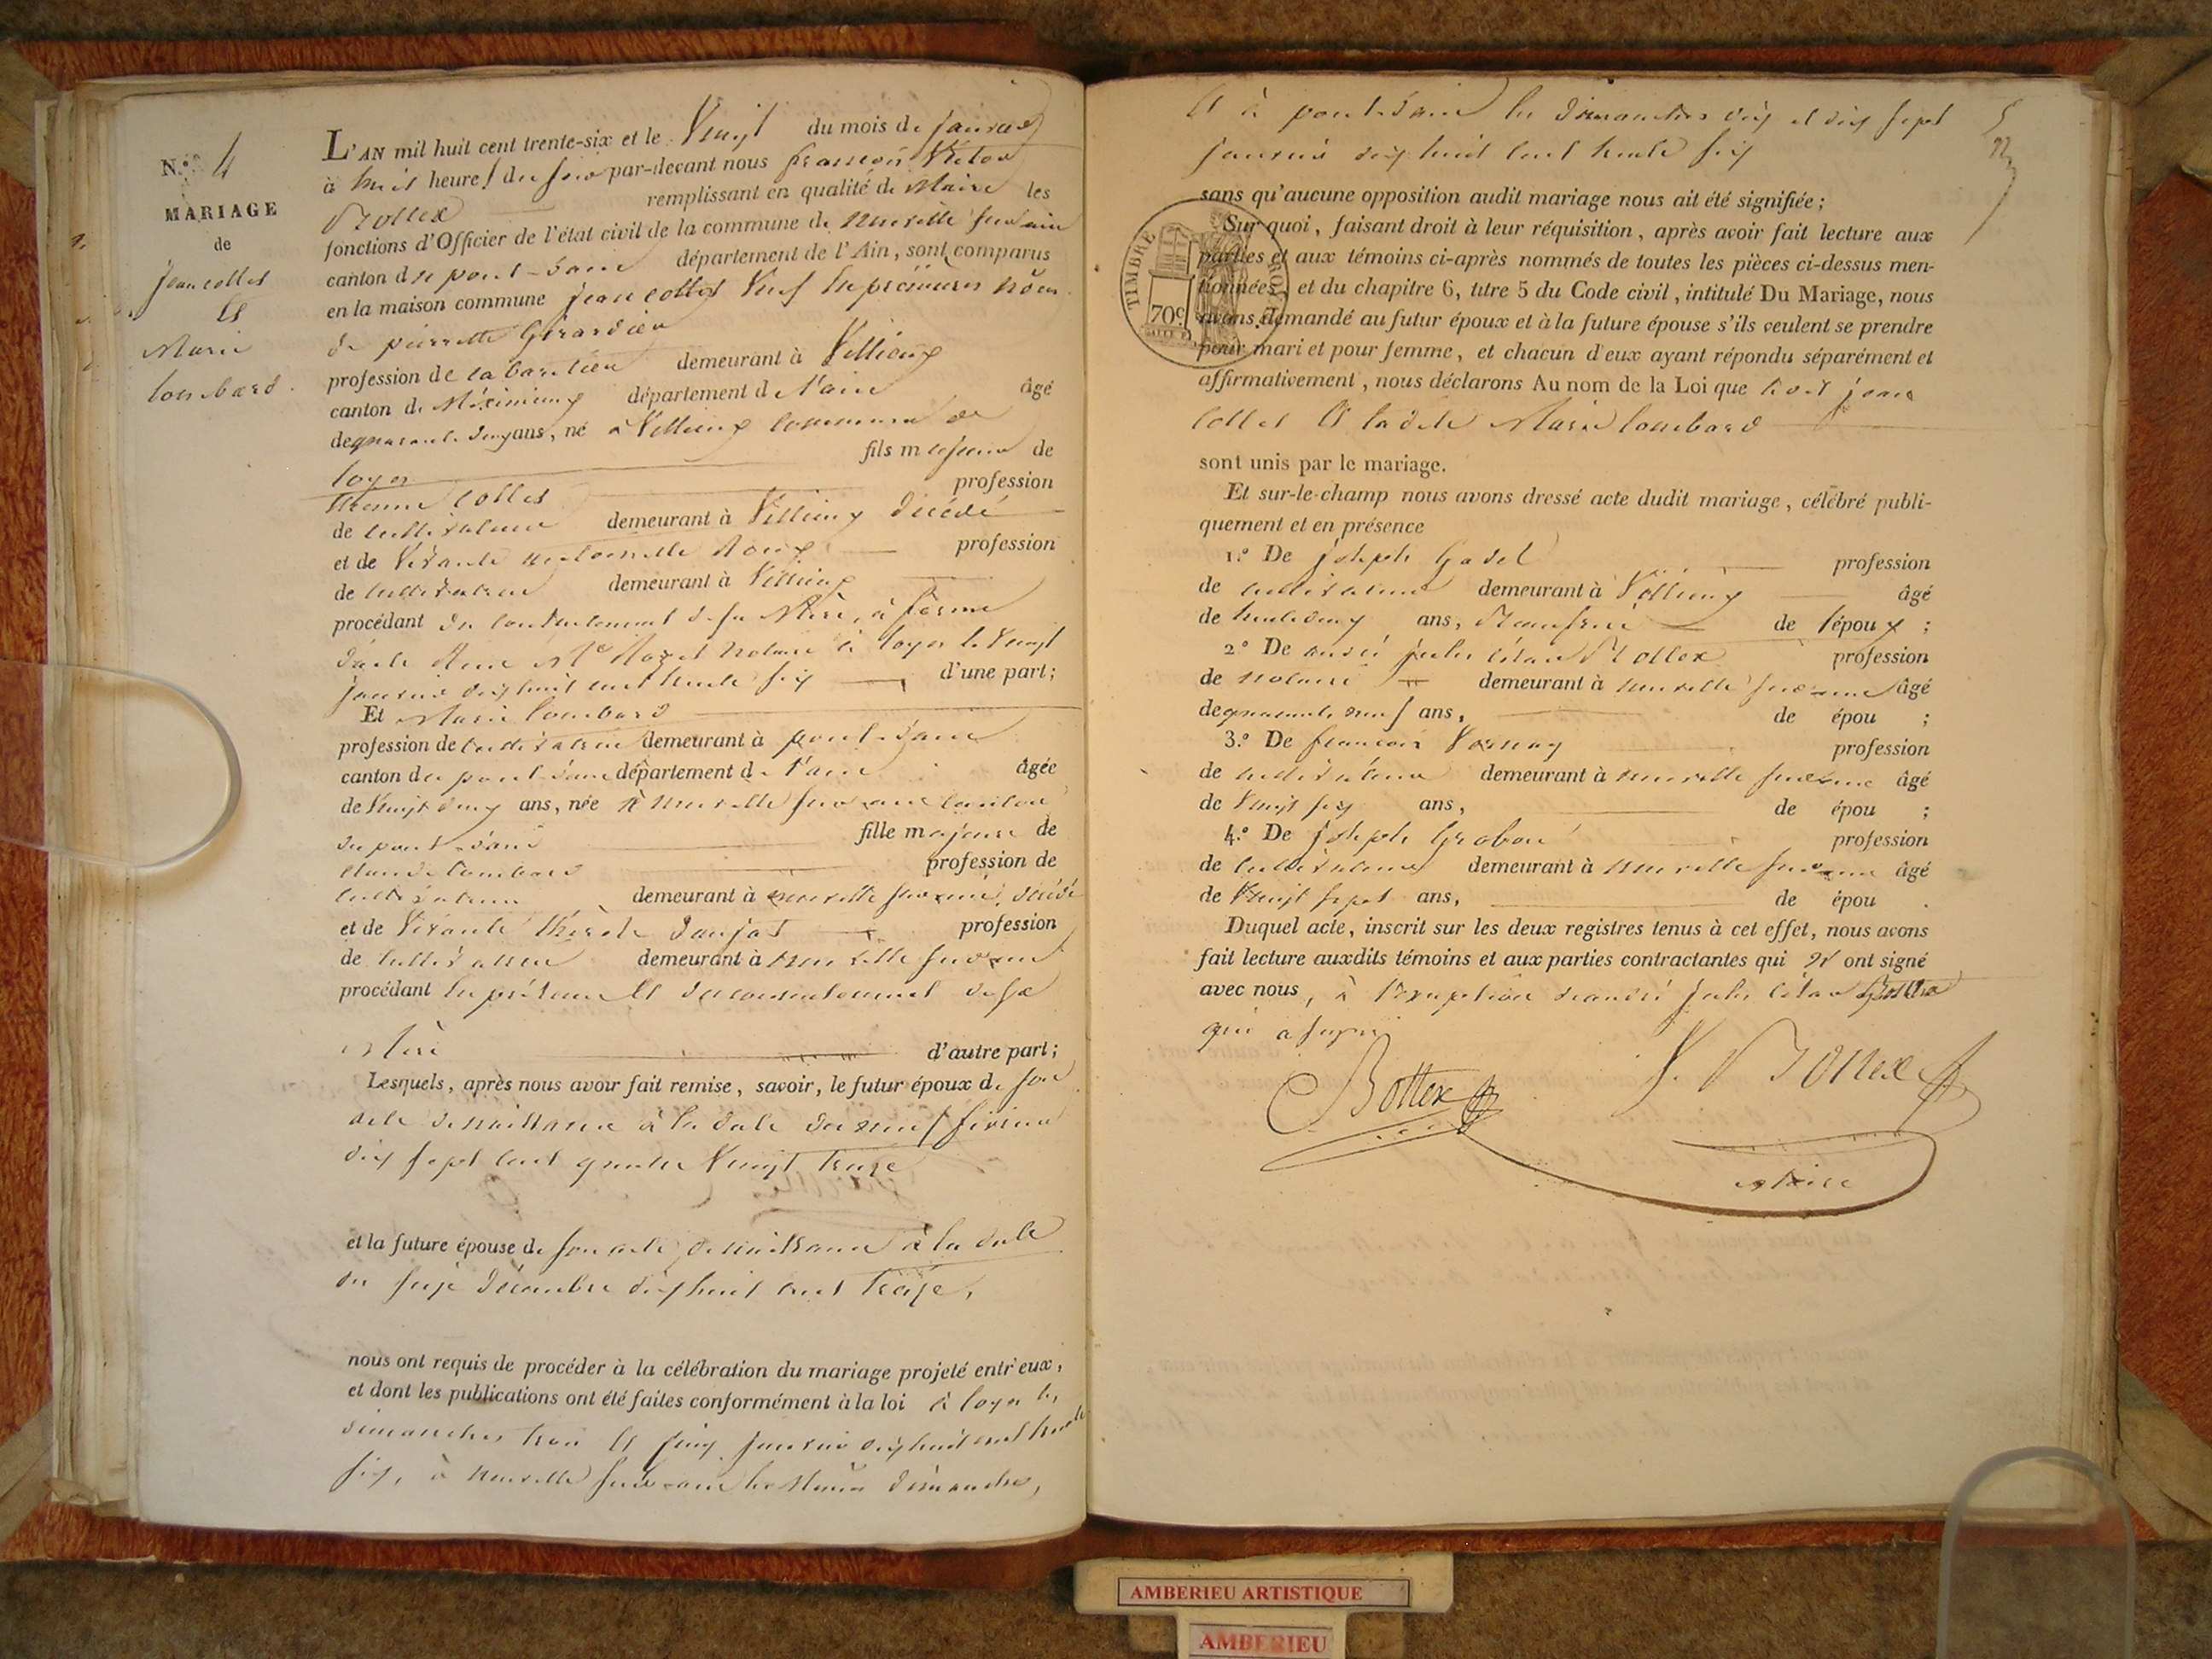 N.º 4
MARIAGE
de
jean collet
Et
Marie
lombard
L'AN mil huit cent trente-six et le Vingt du mois de janvier
à huit heures du soir par-devant nous françois Victor
Bottex remplissant en qualité de Maire les
fonctions d'Officier de l'état civil de la commune de neuville sur ain
canton de pont-d'ain département de l'Ain, sont comparus
en la maison commune jean collet Veuf en premières nôces
de pierrette Girardier
profession de cabaretier demeurant à Villieux
canton de Méximieux département de l'ain âgé
de quarante deux ans, né à Villieux commune de
loyes fils majeur de
Etienne collet profession
de cultivateur demeurant à Villieux décédé
et de Vivante antoinette Roux profession
de cultivatrice demeurant à Villieux
procédant du consentement de sa Mère, à forme
d'acte Reçu Me notaire à loyes le vingt
janvier dix huit cent trente six d'une part;
Et Marie lombard
profession de cultivatrice demeurant à pont-d'ain
canton de pont-d'ain département de l'ain âgée
de Vingt deux ans, née à neuville sur ain canton
du pont-d'ain fille majeure de
claude lombard profession de
cultivateur demeurant à neuville sur ain, décédé
et de Vivante thérèse Danjat profession
de cultivatrice demeurant à neuville sur ain
procédant en présence Et du consentement de sa
Mère d'autre part;
Lesquels, après nous avoir fait remise, savoir, le futur époux de son
acte de naissance à la date du neuf février
dix sept cent quatre Vingt treize
et la future épouse de son acte de naissance à la date
du seize décembre dix huit cent treize,
nous ont requis de procéder à la célébration du mariage projeté entr'eux,
et dont les publications ont été faites conformément à la loi à loyes les
dimanches trois Et janvier dix huit cent trente
six, à neuville sur ain les Mêmes dimanches,
Et à pont-d'ain les dimanches dix et dix sept
janvier dix huit cent trente six
sans qu'aucune opposition audit mariage nous ait été signifiée;
Sur quoi, faisant droit à leur réquisition, après avoir fait lecture aux
parties et aux témoins ci-après nommés de toutes les pièces ci-dessus men-
tionnées, et du chapitre 6, titre 5 du Code civil, intitulé Du Mariage, nous
avons demandé au futur époux et à la future épouse s'ils veulent se prendre
pour mari et pour femme, et chacun d'eux ayant répondu séparément et
affirmativement, nous déclarons Au nom de la Loi que ledit jean
collet Et la dite Marie lombard
sont unis par le mariage.
Et sur-le-champ nous avons dressé acte dudit mariage, célébré publi-
quement et en présence
1.º De joseph Gadel profession
de cultivateur demeurant à Villieux âgé
de trente deux ans, Beaufrère de l'époux;
2º De andré jules césar Bottex profession
de notaire demeurant à neuville sur ain âgé
de quarante neuf ans, de épou ;
3.º De françois profession
de cultivateur demeurant à neuville sur ain âgé
de Vingt six ans, de épou ;
4.º De joseph Grobon profession
de cultivateur demeurant à neuville sur ain âgé
de Vingt sept ans, de épou .
Duquel acte, inscrit sur les deux registres tenus à cet effet, nous avons
fait lecture auxdits témoins et aux parties contractantes qui n'ont signé
avec nous, à l'exception d'andré jules césar Bottex
qui a signé
Bottex
V. Bottex
Maire
TIMBRE ROYAL
70c
AMBERIEU ARTISTIQUE
AMBERIEU